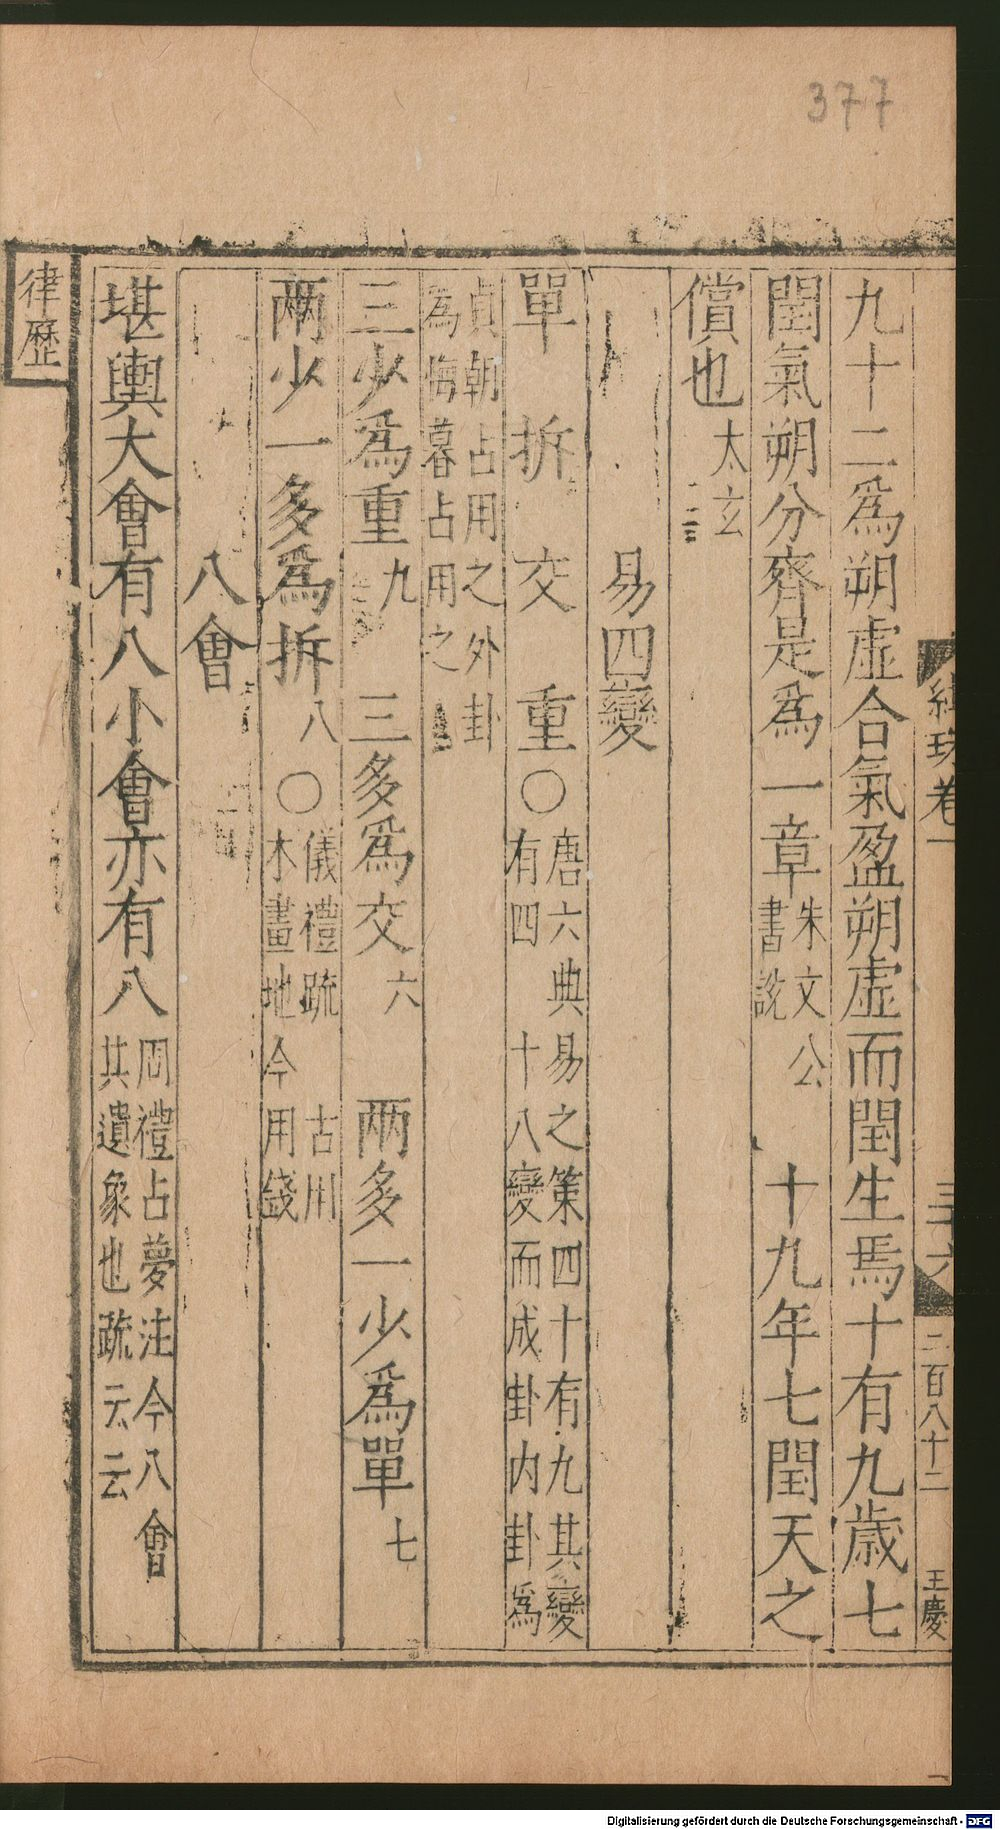 377
九十二爲朔虛合氣盈朔虛而閏生焉十有九歲七
閏氣朔分齊是爲一章朱文公書說 十九年七閏天之
償也太玄
易四變
單 拆 交 重○唐六典易之策四十有九其變有四十八變而成卦内卦爲
貞朝占用之外卦為悔暮占用之
三少爲重九 三多爲交六 兩多一少爲單七
兩少一多爲拆八○儀禮疏 古用木畫地今用錢
八會
堪輿大會有八小會亦有八周禮占夢注今八會其遺象也疏云云
律歷
卷一
二百八十二
王慶
Digitalisierung gefördert durch die Deutsche Forschungsgemeinschaft - DFG